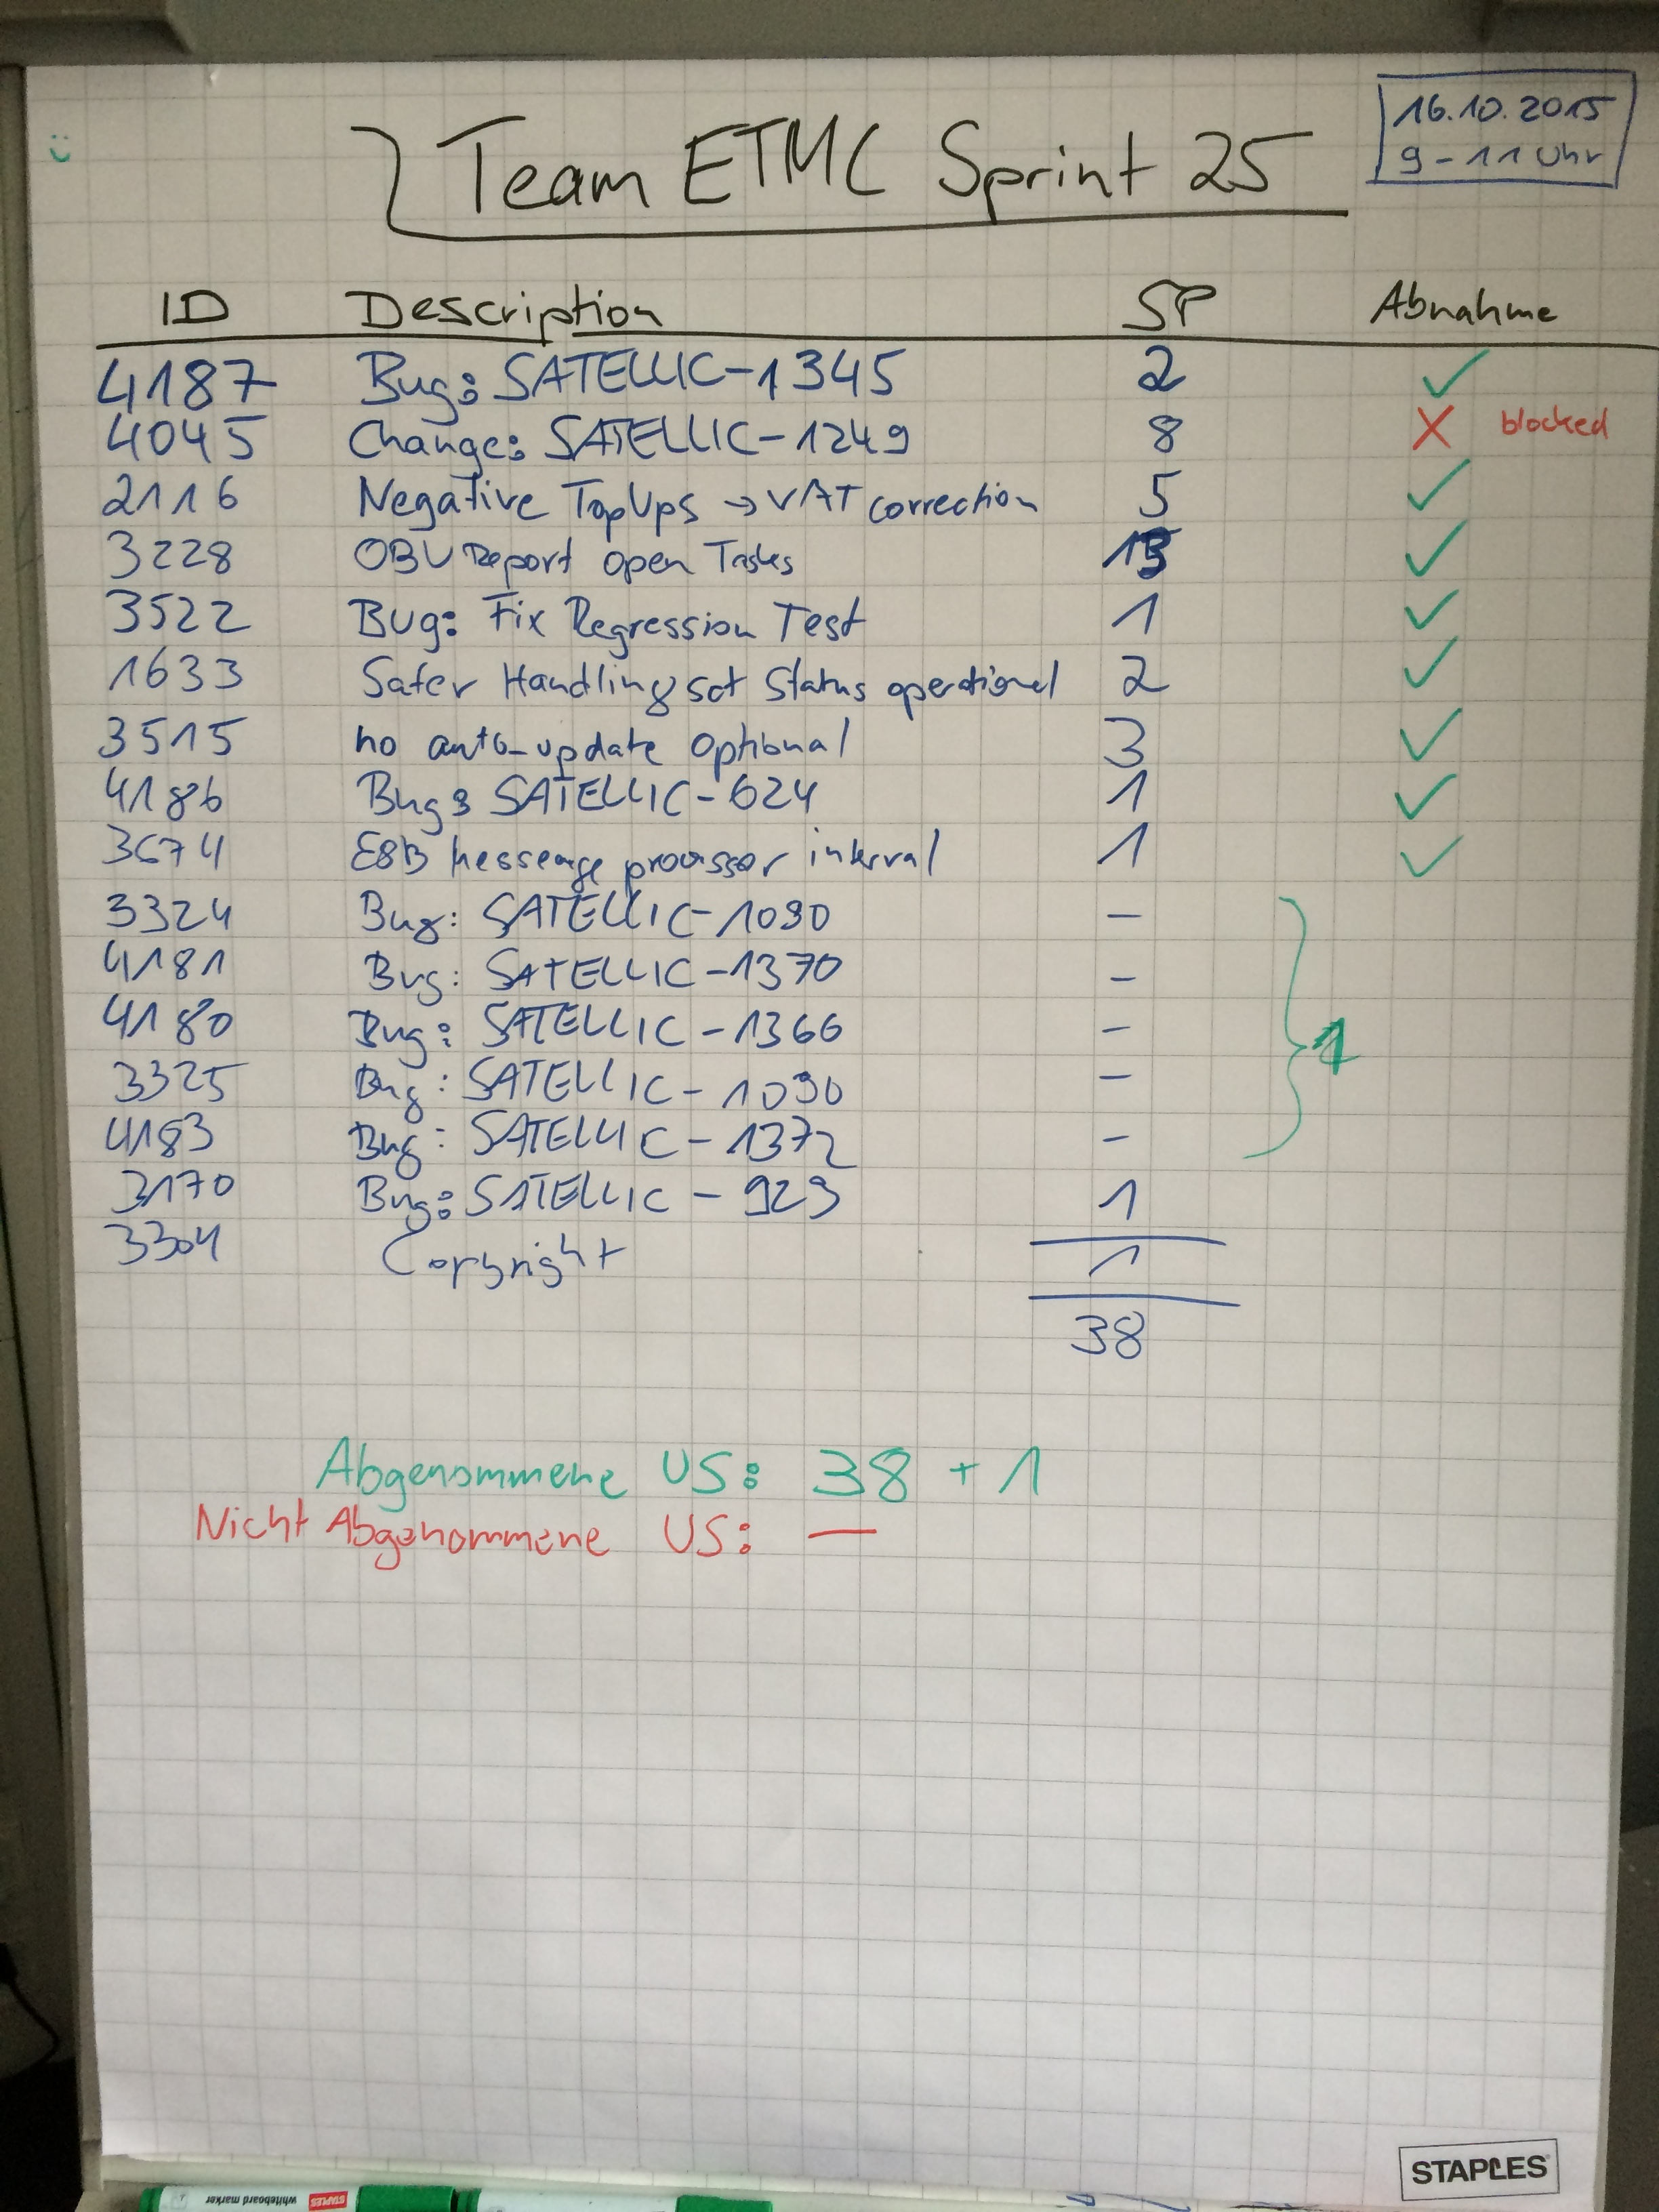 16.10.2015
9-11 Uhr
Team ETMC Sprint 25
ID Description SP Abnahme
4187 Bug: SATELLIC-1345 2 ✓
4045 Change: SATELLIC-1249 8 X blocked
2116 Negative TopUps → VAT correction 5 ✓
3228 OBU Report open Tasks 13 ✓
3522 Bug: Fix Regression Test 1 ✓
1633 Safer Handling set Status operational 2 ✓
3515 no auto-update optional 3 ✓
4186 Bug: SATELLIC-624 1 ✓
3674 ESB Messeage processor interval 1 ✓
3324 Bug: SATELLIC-1090 –
4181 Bug: SATELLIC-1370 –
4180 Bug: SATELLIC-1366 –
3325 Bug: SATELLIC-1090 –
4183 Bug: SATELLIC-1372 –
1
3170 Bug: SATELLIC-923 1
3304 Copyright 1
38
Abgenommene US: 38 + 1
Nicht Abgenommene US: —
STAPLES
whiteboard marker STAPLES